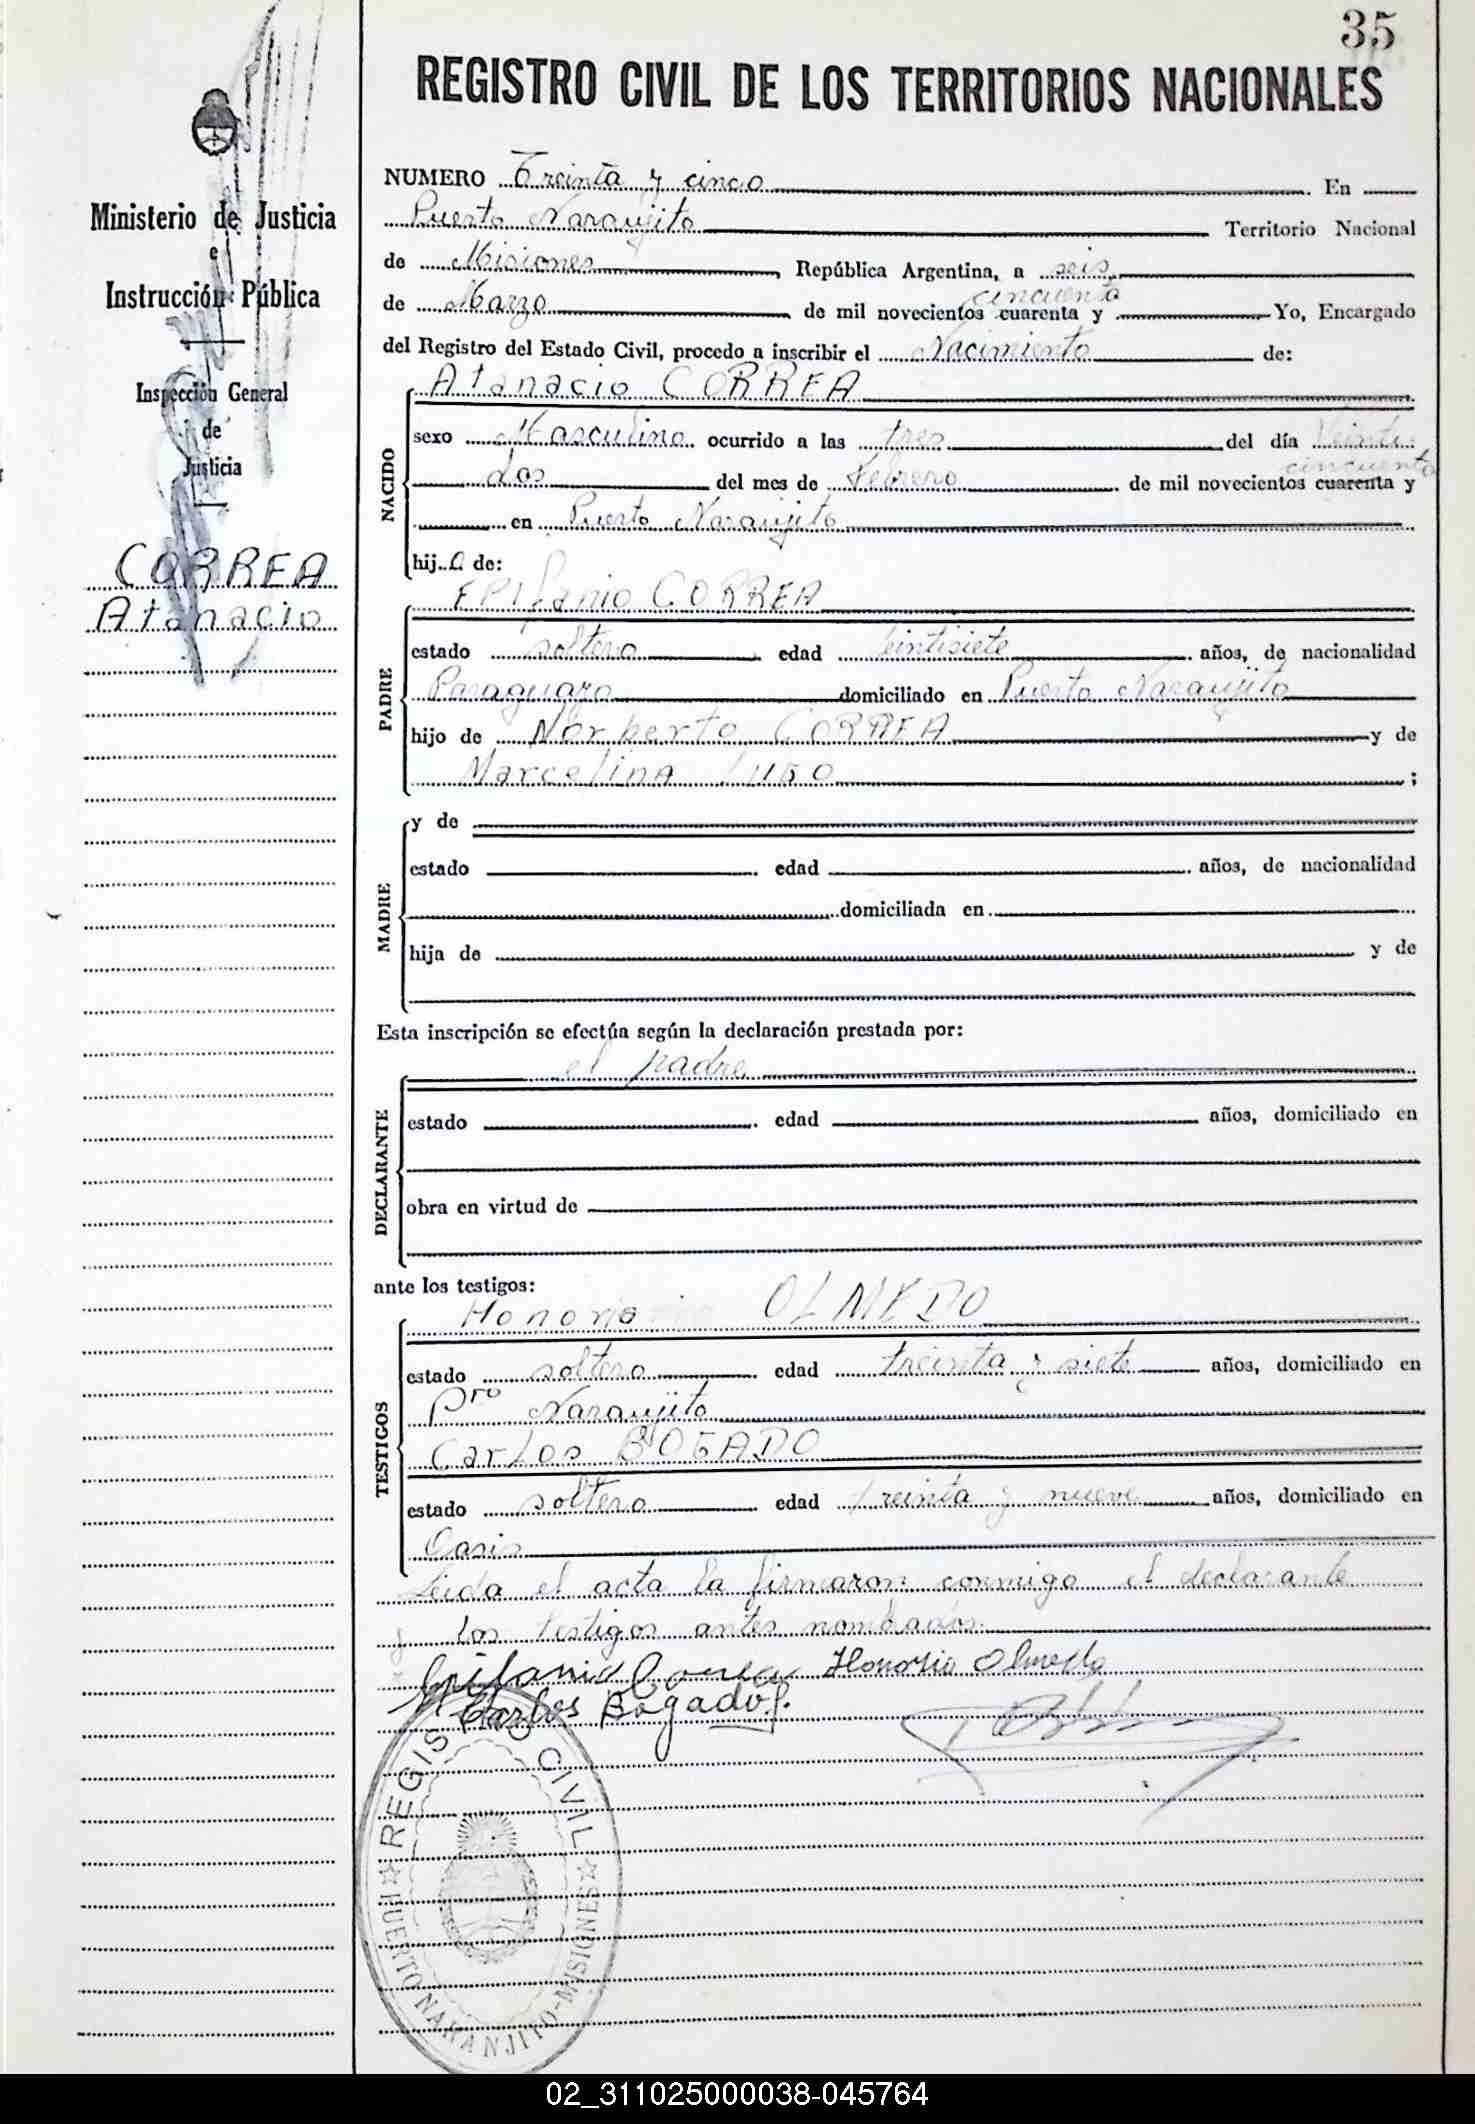 35
REGISTRO CIVIL DE LOS TERRITORIOS NACIONALES
Ministerio de Justicia
e
Instrucción Pública
Inspección General
de
Justicia
CORREA
Atanacio
NUMERO Treinta y cinco En
Puerto Naranjito Territorio Nacional
de Misiones, República Argentina, a seis
cincuenta
de Marzo de mil novecientos cuarenta y Yo, Encargado
del Registro del Estado Civil, procedo a inscribir el Nacimiento de:
NACIDO
Atanacio CORREA
sexo Masculino ocurrido a las tres del día Veinti
cincuenta
dos del mes de Febrero de mil novecientos cuarenta y
en Puerto Naranjito
hijo de:
PADRE
EPIfanio CORREA
estado soltero edad veintisiete años, de nacionalidad
Paraguayo domiciliado en Puerto Naranjito
hijo de Norberto CORREA y de
Marcelina ;
MADRE
y de
estado edad años, de nacionalidad
domiciliada en
hija de y de
Esta inscripción se efectúa según la declaración prestada por:
DECLARANTE
el padre
estado edad años, domiciliado en
obra en virtud de
ante los testigos:
TESTIGOS
Honorio OLMEDO
estado soltero edad treinta y siete años, domiciliado en
Pto Naranjito
Carlos BOGADO
estado soltero edad treinta y nueve años, domiciliado en
Oasis
Leida el acta la firmaron conmigo el declarante
y los testigos antes nombrados
Epifanio Correa Honorio Olmedo
Carlos Bogado
REGISTRO CIVIL
PUERTO NARANJITO-MISIONES
02_311025000038-045764